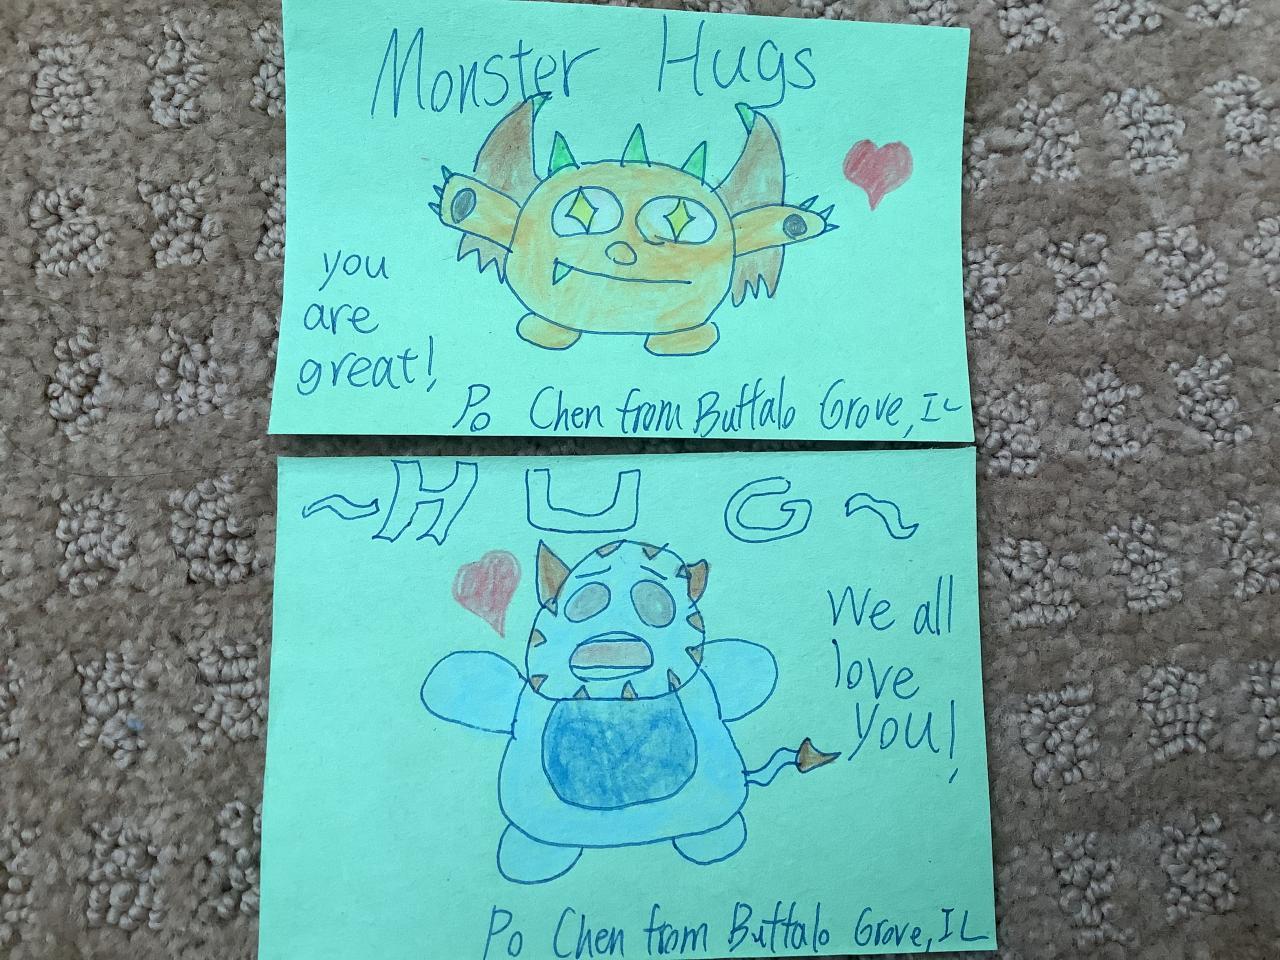 Monster Hugs
you
are
great!
Po Chen from Buffalo Grove, IL
~HUG~
We all
love
you!
Po Chen from Buffalo Grove, IL